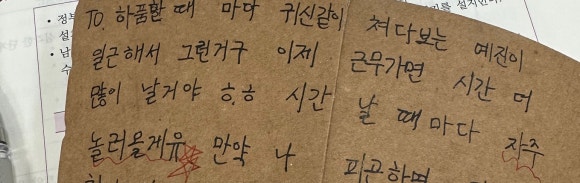 TO. 하품할 때 마다 귀신같이 쳐다보는 예진이
월근해서 그런거구 이제 근무가면 시간 더
많이 날거야 ㅎ.ㅎ 시간 날 때마다 자주
놀러올게유 만약 나 피곤하면